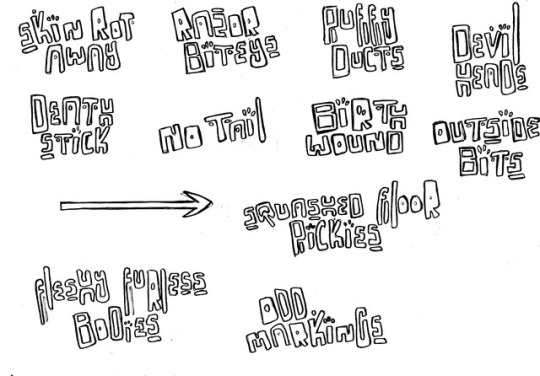 SKIN ROT
AWAY
RAZOR
BITEYS
PUFFY
DUCTS
DEVIL
HEADS
DEATH
STICK
NO TAIL
BIRTH
WOUND
OUTSIDE
BITS
SQUASHED FLOOR
PICKIES
FLESHY FURLESS
BODIES
ODD
MARKINGS